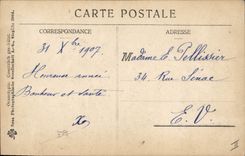 CARTE POSTALE
CORRESPONDANCE
ADRESSE
31 Xbre 1907
Heureuse année
Bonheur et santé
Madame E. Pellissier
34, Rue Sénac
E. V.